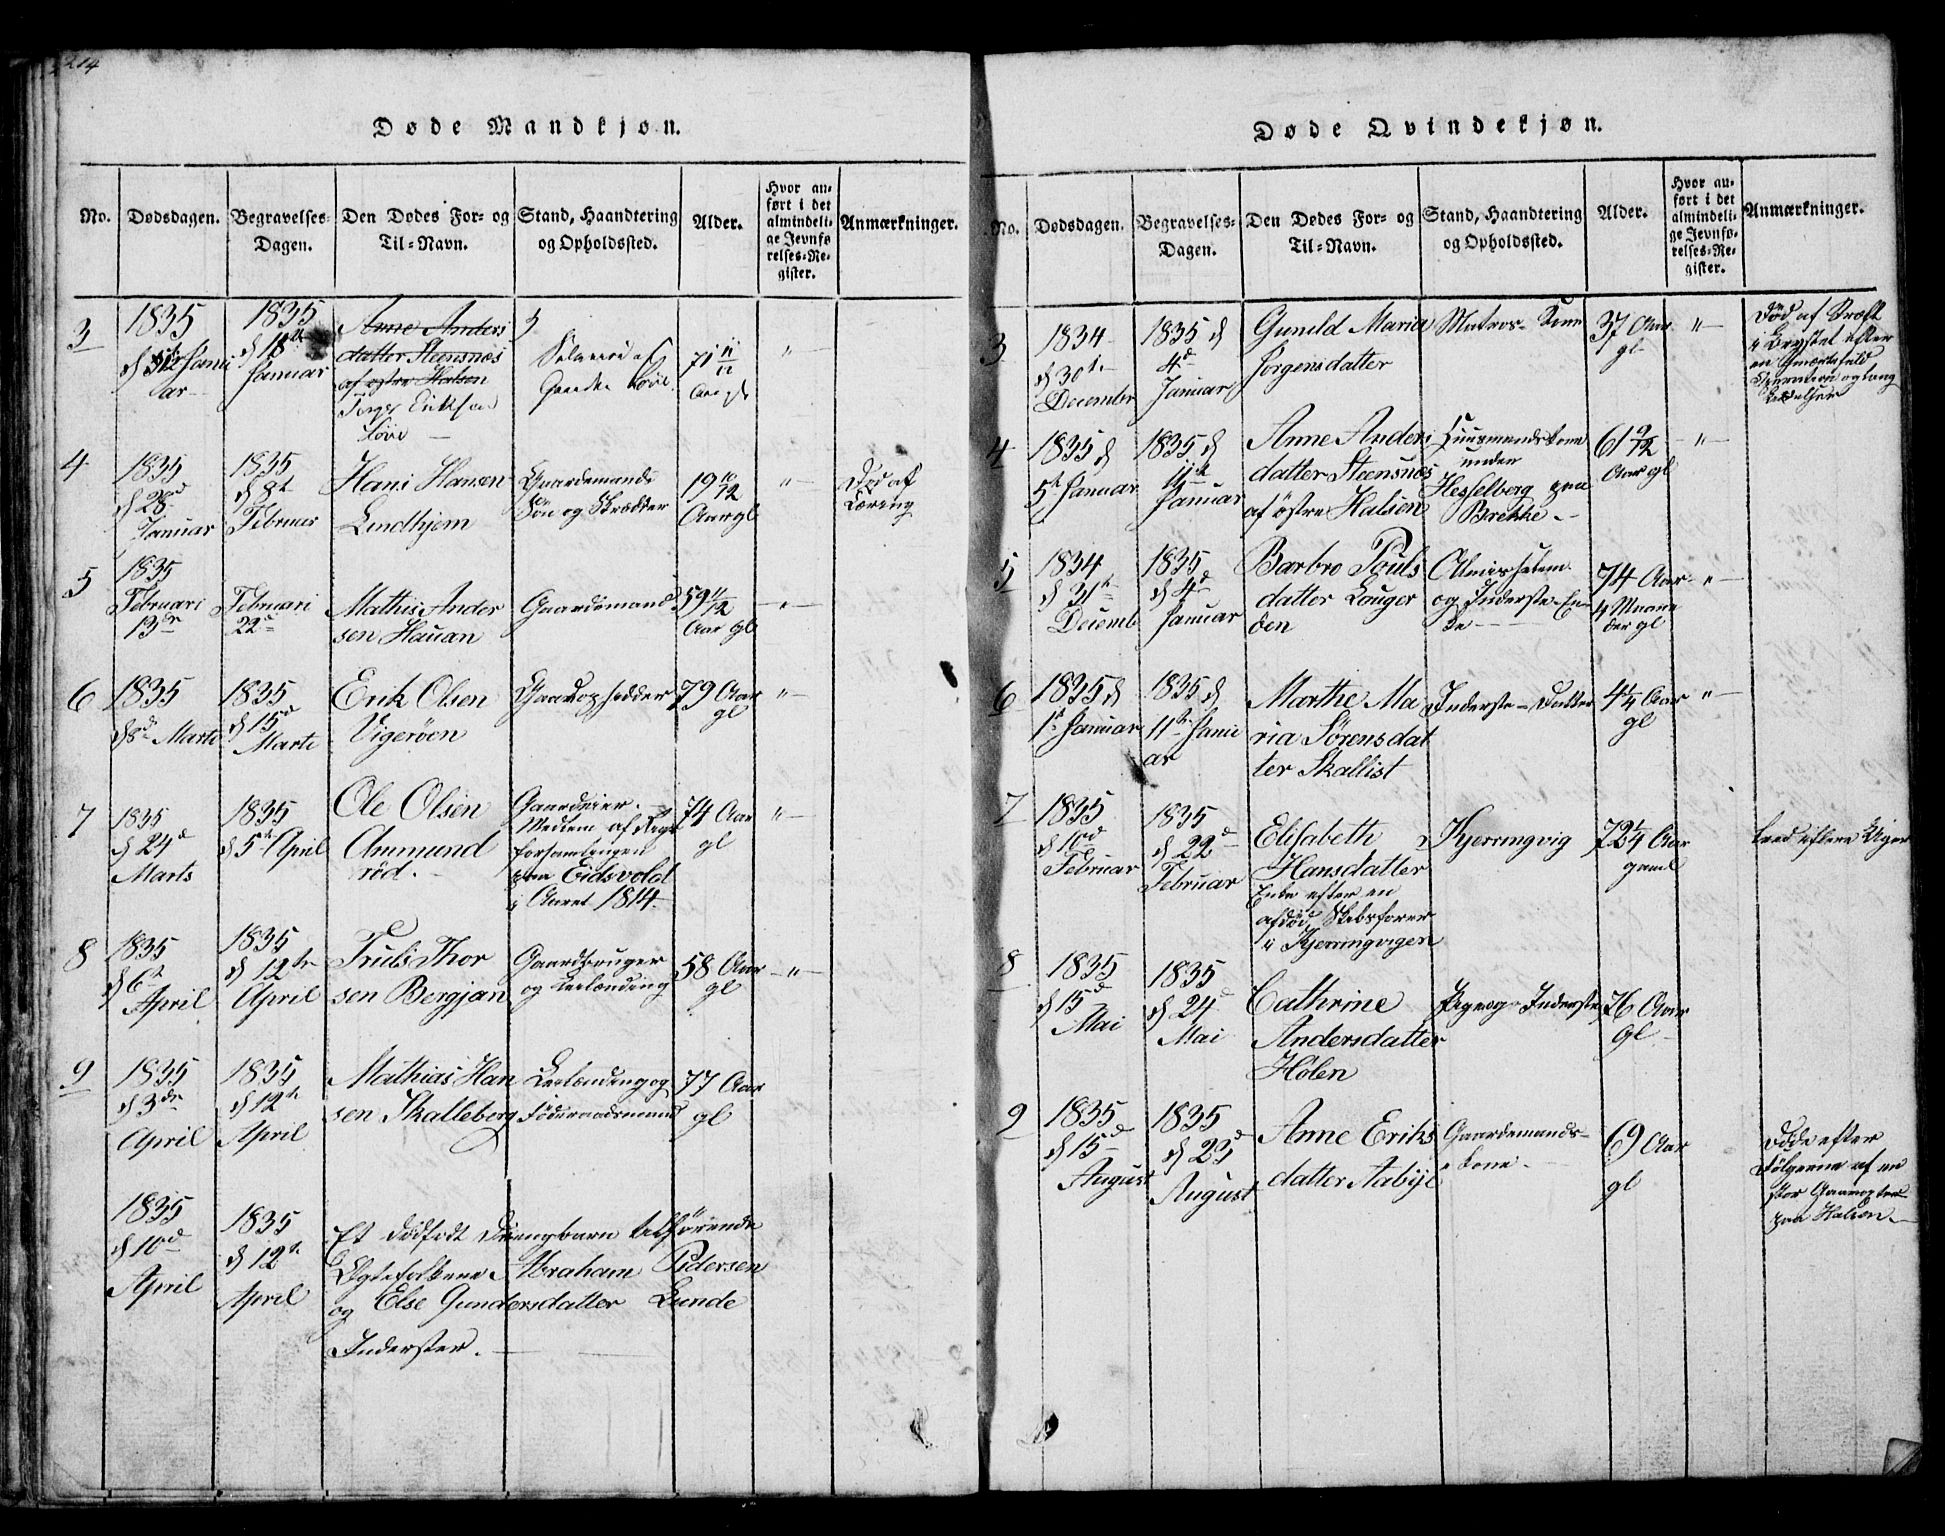 214
Døde Mandkjøn.
No. Dødsdagen. Begravelses-Dagen. Den Dødes For- og Til-Navn. Stand, Haandtering og Opholdssted. Alder. Hvor anført i det almindelige Jevnførelses-Register. Anmærkninger.
3
1835
Januar
1835
d 18de
Januar
Anne Anders
datter Steensnæs
af østre Halsen
Eriksen
71 11/12
Aar gl
"
4
1835
d 28de
Januar
1835
d 8de
Februar
Hans Hansen
Lindhjem
Gaardmands
Søn og Skrædder
19 10/12
Aar gl
"
Død af
Tæring
5
1835
Februari
13de
Februari
22de
Mathis Ander
sen Hauan
Gaardemand
59 11/12
Aar gl
"
6
1835
d 8de Marti
1835
d 15de
Marti
Erik Olsen
Vigerøen
Gaardopsidder
79 Aar
gl
"
7
1835
d 24de
Marts
1835
d 5te April
Ole Olsen
Ammund
rød.
Gaardeier.
Medlem af Rigs
forsamlingen
paa Eidsvold
i Aaret 1814.
74 Aar
gl
"
8
1835
d 6te
April
1835
d 12te
April
Truls Thor
sen Bergjan
Gaardbruger
og Leilænding
58 Aar
gl
"
9
1835
d 3die
April
1835
d 12te
April
Mathias Han
sen Skalleberg
Leilænding og
Føderaadsmand
77 Aar
gl
1835
d 10de
April
1835
d 12te
April
Et dødfødt Drengebarn tilhørende
Ægtefolkene Abraham Pedersen
og Else Gundersdatter Lunde
Inderster.
Døde Qvindekjøn.
No. Dødsdagen. Begravelses-Dagen. Den Dødes For- og Til-Navn. Stand, Haandtering og Opholdssted. Alder. Hvor anført i det almindelige Jevnførelses-Register. Anmærkninger.
3
1834
d 30te
December
1835 d
4de
Januar
Gunild Maria
Jørgensdatter
Matros-Kone
37 Aar
gl
"
Død af Kræft
i Brystet efter
en smertefuld
Operation og lang
Lidelser
4
1835 d
5te Januar
1835 d
11te
Januar
Anne Anders
datter Steensnæs
af østre Halsen
Huusmands Kone
under
Hesselberg paa
Brekke.
61 9/12
Aar gl
"
5
1834
d 31te
Decemb
1835
d 4de
Januar
Barbro Pouls
datter Lauger
den
Almisselem
og Inderste-En-
ke
74 Aar
4 Maane
der gl
"
6
1835 d
1te Januar
1835 d
11te Janu
ar
Marthe Ma
ria Sørensdat
ter Skallist
Inderste-Datter
4 1/4 Aar
gl
"
7
1835
d 10de
Februar
1835
d 22de
Februar
Elisabeth
Hansdatter
Enke efter en
afdød Skibsfører
i Kjerringvigen
Kjerringvig
72 1/4 Aar
gaml
8
1835
d 15de
Mai
1835
d 24de
Mai
Cathrine
Andersdatter
Hølen
Pige og Inderste
76 Aar
gl
9
1835
d 15de
August
1835
d 23de
August
Anne Eriks
datter Aabye
Gaardemands-
kone.
69 Aar
gl
Døde efter
Følgerne af en
stor
paa Halsen.